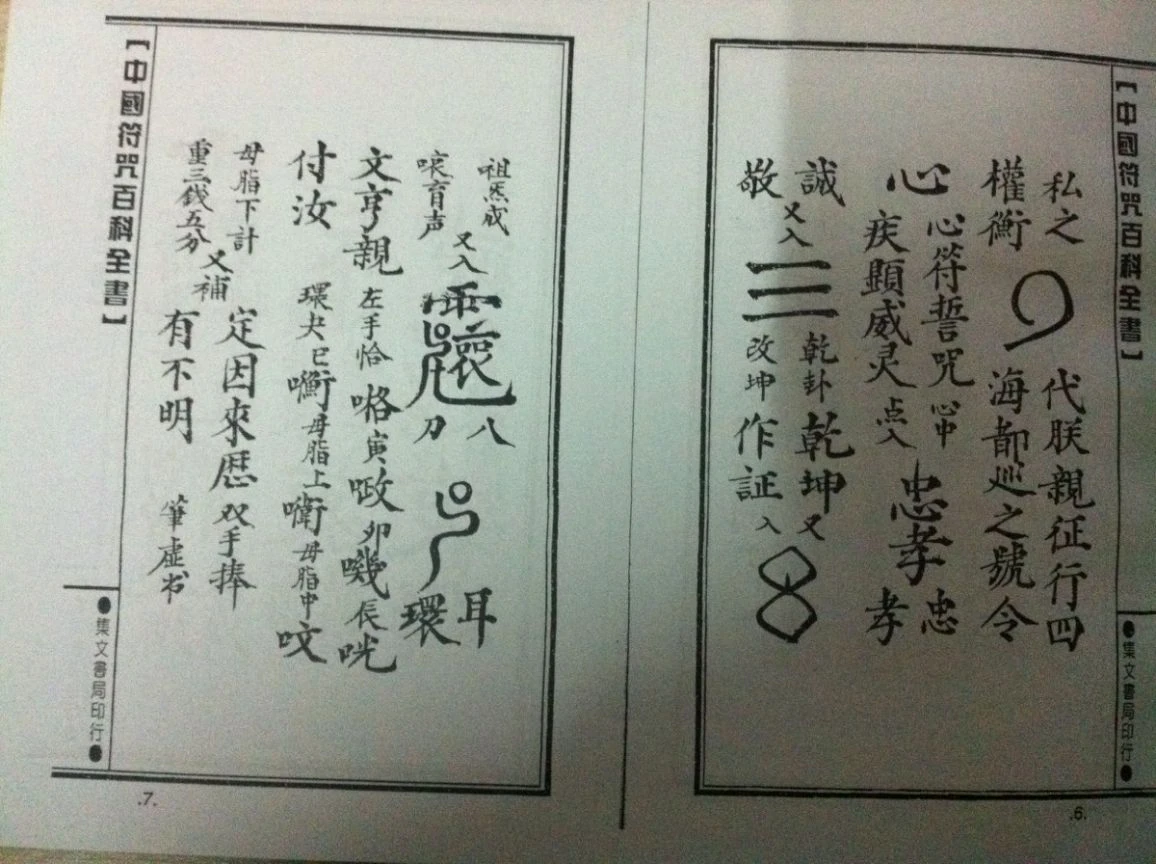 【中國符咒百科全書】
●集文書局印行●
私之
代朕親征行四
權衡
海都巡之號令
心
心符誓咒
心中
疾顯威灵
点入
忠孝
忠
孝
誠
敬
又入
三
乾卦
改坤
乾坤又
作証入
.6.
祖炁成
哀育声
又入
八
刀
耳
環
文亨親
左手恰
咯寅
呶卯
嘰辰咣
付汝
環夬巳
母脂上
母脂中
呅
母脂下計
重三錢五分
又補
定因來歷
双手捧
有不明
筆虛书
【中國符咒百科全書】
●集文書局印行●
.7.